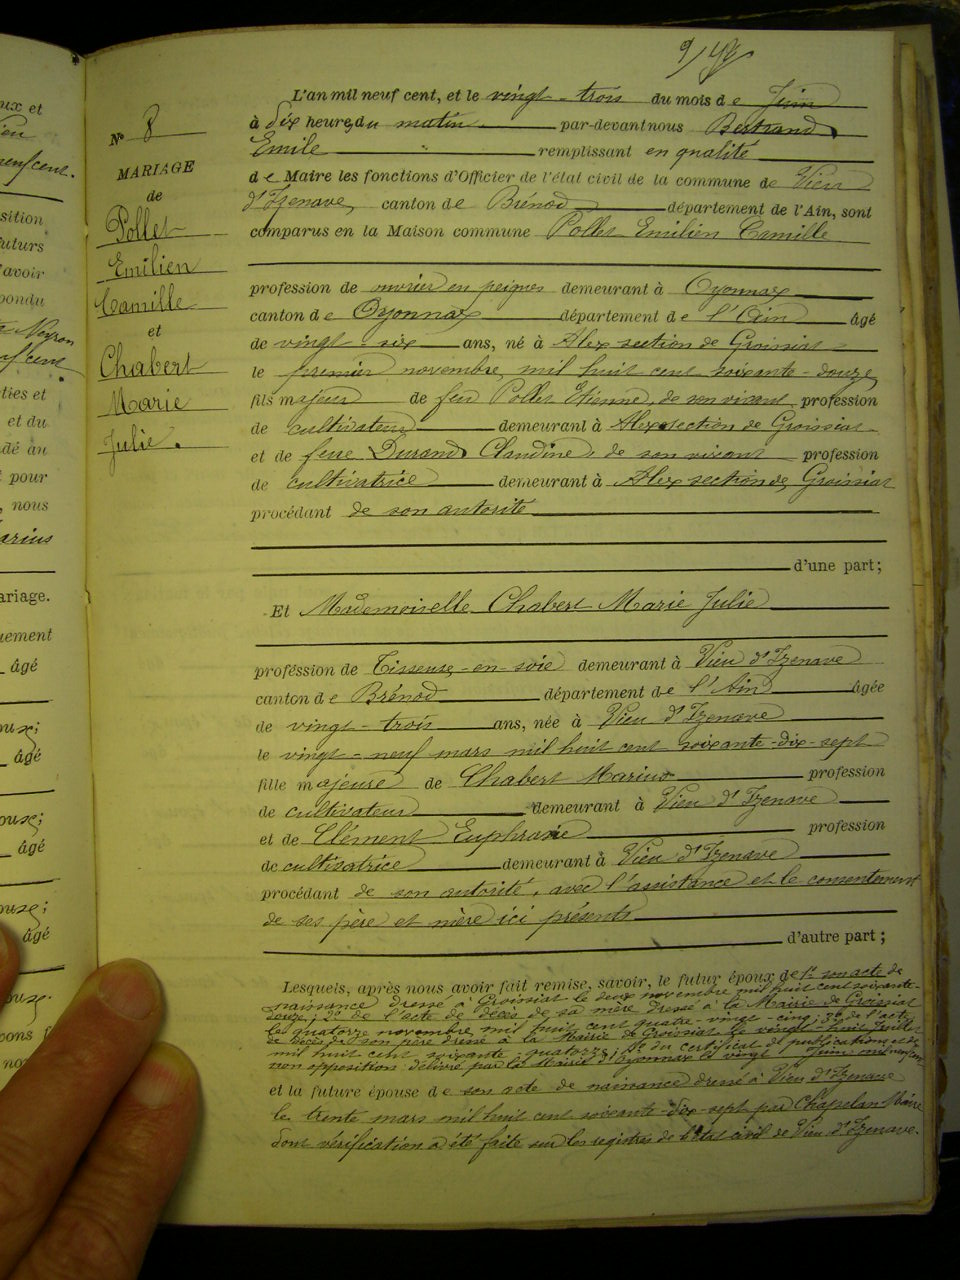 9
ux et
ieu
neuf cent.
sition
futurs
'avoir
pondu
Neyron
uf cent
ties et
et du
dé au
t pour
, nous
arius
ariage.
uement
âgé
âgé
âgé
âgé
No 8
MARIAGE
de
Pollet
Emilien
Camille
et
Chabert
Marie
Julie.
L'an mil neuf cent, et le vingt-trois du mois de Juin
à dix heures du matin par-devant nous Bertrand
Emile remplissant en qualité
de Maire les fonctions d'Officier de l'état civil de la commune de Vieu
d'Izenave, canton de Brénod département de l'Ain, sont
comparus en la Maison commune Pollet Emilien Camille
profession de ouvrier en peignes demeurant à Oyonnax
canton de Oyonnax département de l'Ain âgé
de vingt-six ans, né à Alex section de Groissiat
le premier novembre, mil huit cent soixante-douze
fils majeur de feu Pollet Etienne, de son vivant profession
de cultivateur demeurant à Alex section de Groissiat
et de feue Durand Claudine, de son vivant profession
de cultivatrice demeurant à Alex section de Groissiat
procédant de son autorité
d'une part;
Et Mademoiselle Chabert Marie Julie
profession de Tisseuse-en-soie demeurant à Vieu d'Izenave
canton de Brénod département de l'Ain âgée
de vingt-trois ans, née à Vieu d'Izenave
le vingt-neuf mars mil huit cent soixante-dix-sept
fille majeure de Chabert Marius profession
de cultivateur demeurant à Vieu d'Izenave
et de Clément Euphrasie profession
de cultivatrice demeurant à Vieu d'Izenave
procédant de son autorité, avec l'assistance et le consentement
de ses père et mère ici présents
d'autre part;
Lesquels, après nous avoir fait remise, savoir, le futur époux de 1° son acte de
naissance dressé à Groissiat le deux novembre mil huit cent soixante-
douze; 2° de l'acte de décès de sa mère dressé à la Mairie de Groissiat
le quatorze novembre mil huit cent quatre-vingt-cinq; 3° de l'acte
de décès de son père dressé à la Mairie de Groissiat le vingt-huit Juillet
mil huit cent soixante quatorze; 4° du certificat de publication et de
non opposition délivré par la Mairie d'Oyonnax le vingt Juin mil neuf cent
et la future épouse de son acte de naissance dressé à Vieu d'Izenave
le trente mars mil huit cent soixante-dix-sept par Chapelan Maire
dont vérification a été faite sur les registres de l'état civil de Vieu d'Izenave.